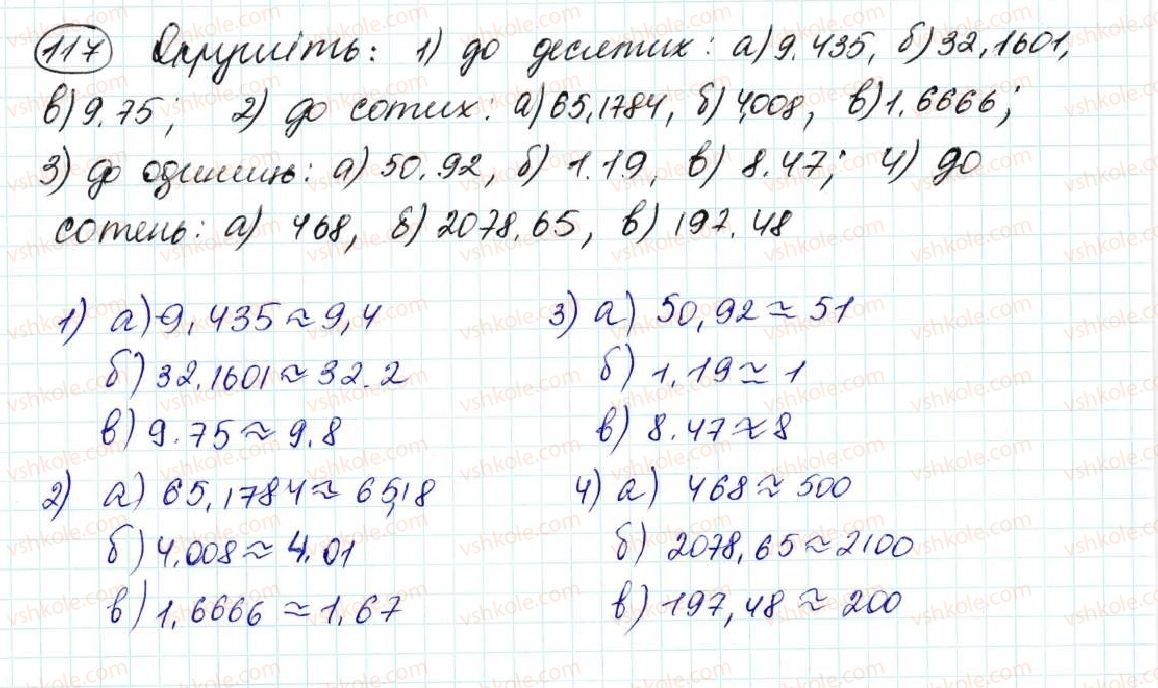 117 Округліть: 1) до десятих: а) 9.435, б) 32,1601,
в) 9.75; 2) до сотих: а) 65,1784, б) 4,008, в) 1,6666;
3) до одиниць: а) 50.92, б) 1.19, в) 8.47; 4) до
сотень: а) 468, б) 2078.65, в) 197.48
1) а) 9,435 ≈ 9,4
б) 32.1601 ≈ 32.2
в) 9.75 ≈ 9.8
2) а) 65,1784 ≈ 65,18
б) 4.008 ≈ 4.01
в) 1,6666 ≈ 1,67
3) а) 50,92 ≈ 51
б) 1.19 ≈ 1
в) 8.47 ≈ 8
4) а) 468 ≈ 500
б) 2078,65 ≈ 2100
в) 197,48 ≈ 200